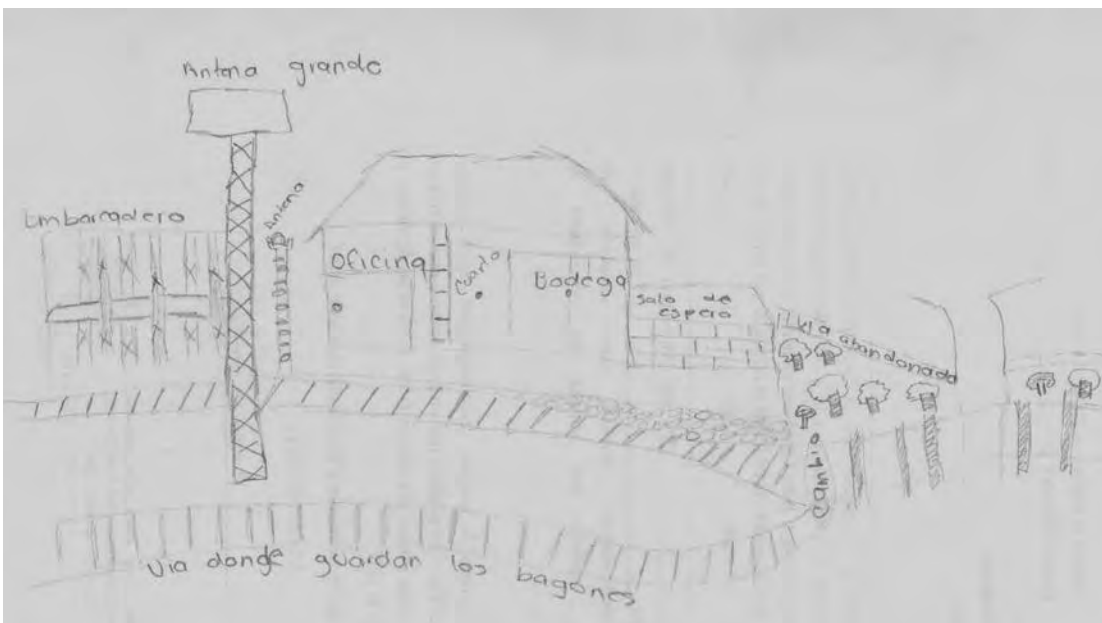 Antena grande
Embarcadero
Antena
Oficina
Cuarto
Bodega
Sala de
espera
Via abandonada
Cambio
Via donde guardan los bagones